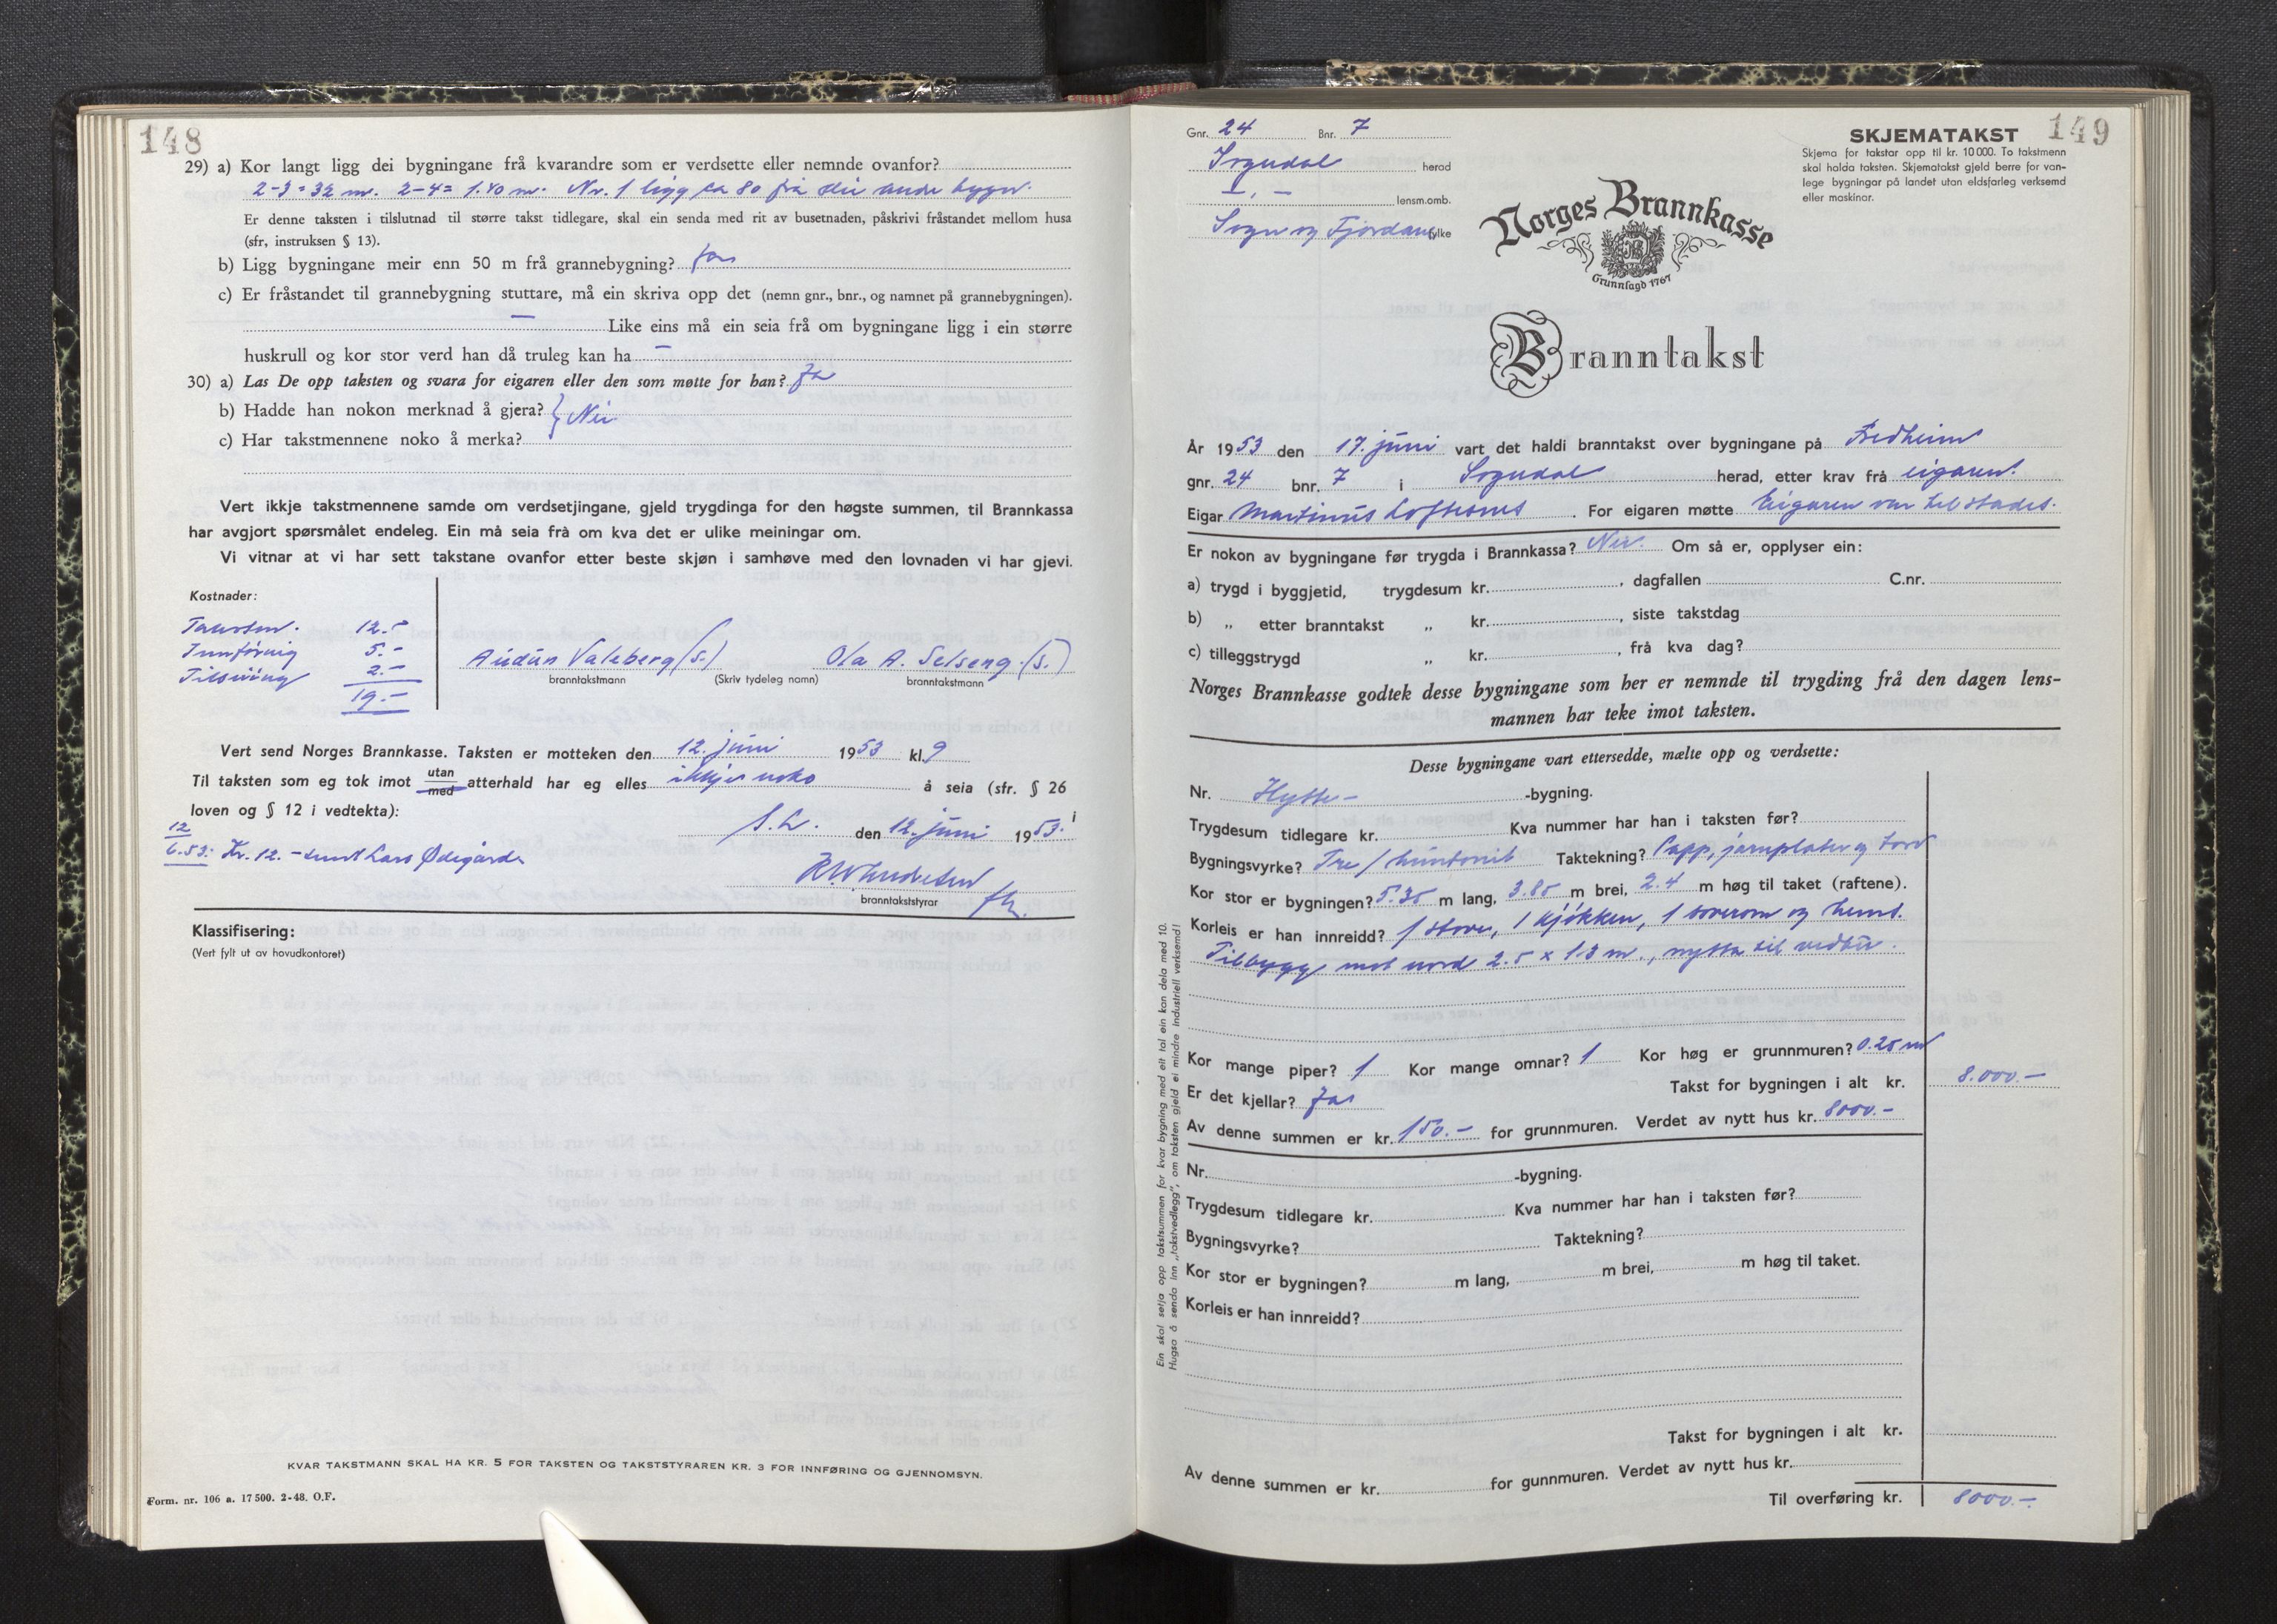 148
29) a) Kor langt ligg dei bygningane frå kvarandre som er verdsette eller nemnde ovanfor?
2-3 = 32 m. 2-4 = 1.80 m. Nr. 1 ligg ca 80 frå dei andre bygn.
Er denne taksten i tilslutnad til større takst tidlegare, skal ein senda med rit av busetnaden, påskrivi fråstandet mellom husa
(sfr, instruksen § 13).
b) Ligg bygningane meir enn 50 m frå grannebygning? Ja
c) Er fråstandet til grannebygning stuttare, må ein skriva opp det (nemn gnr., bnr., og namnet på grannebygningen).
— Like eins må ein seia frå om bygningane ligg i ein større
huskrull og kor stor verd han då truleg kan ha —
30) a) Las De opp taksten og svara for eigaren eller den som møtte for han? Ja
b) Hadde han nokon merknad å gjera? } Nei
c) Har takstmennene noko å merka?
Vert ikkje takstmennene samde om verdsetjingane, gjeld trygdinga for den høgste summen, til Brannkassa
har avgjort spørsmålet endeleg. Ein må seia frå om kva det er ulike meiningar om.
Vi vitnar at vi har sett takstane ovanfor etter beste skjøn i samhøve med den lovnaden vi har gjevi.
Kostnader:
Taksten. 12.-
Innföring 5.-
2.-
19.-
Audun Valeberg (s.) Ola A. Selseng. (s.)
branntakstmann (Skriv tydeleg namn) branntakstmann
Vert send Norges Brannkasse. Taksten er motteken den 12. juni 1953 kl. 9
Til taksten som eg tok imot utan/med atterhald har eg elles ikkje noko å seia (sfr. § 26
loven og § 12 i vedtekta):
S.L. den 12. juni 1953.
12/6.53: Kr. 12.- sendt Lars Ødegården
branntakststyrar
Klassifisering:
(Vert fylt ut av hovudkontoret)
KVAR TAKSTMANN SKAL HA KR. 5 FOR TAKSTEN OG TAKSTSTYRAREN KR. 3 FOR INNFØRING OG GJENNOMSYN.
Form. nr. 106 a. 17 500. 2-48. O.F.
149
Gnr. 24 Bnr. 7
Sogndal herad
I, — lensm.omb.
Sogn og Fjordane fylke
SKJEMATAKST
Skjema for takstar opp til kr. 10 000. To takstmenn
skal halda taksten. Skjematakst gjeld berre for van-
lege bygningar på landet utan eldsfarleg verksemd
eller maskinar.
Norges Brannkasse
Grunnlagd 1767
Branntakst
År 1953 den 17. juni vart det haldi branntakst over bygningane på Fredheim
gnr. 24 bnr. 7 i Sogndal herad, etter krav frå eigaren.
Eigar Martinus Loftesnes. For eigaren møtte Eigaren var til stades.
Er nokon av bygningane før trygda i Brannkassa? Nei. Om så er, opplyser ein:
a) trygd i byggjetid, trygdesum kr. , dagfallen C.nr.
b) „ etter branntakst „ kr. , siste takstdag
c) tilleggstrygd „ kr. , frå kva dag?
Norges Brannkasse godtek desse bygningane som her er nemnde til trygding frå den dagen lens-
mannen har teke imot taksten.
Desse bygningane vart ettersedde, mælte opp og verdsette:
Nr. Hytte- -bygning.
Trygdesum tidlegare kr. Kva nummer har han i taksten før?
Bygningsvyrke? Tre / huntonit Taktekning? Papp, jarnplater og torv
Kor stor er bygningen? 5.35 m lang, 3.85 m brei, 2.4 m høg til taket (raftene).
Korleis er han innreidd? 1 stove, 1 kjökken, 1 soverom og hems.
Tilbygg mot nord 2.5 x 1.3 m., nytta til vedbu.
Kor mange piper? 1 Kor mange omnar? 1 Kor høg er grunnmuren? 0.25 m
Er det kjellar? Ja Takst for bygningen i alt kr. 8.000.-
Av denne summen er kr. 150.- for grunnmuren. Verdet av nytt hus kr. 8000.-
Nr. -bygning.
Trygdesum tidlegare kr. Kva nummer har han i taksten før?
Bygningsvyrke? Taktekning?
Kor stor er bygningen? m lang, m brei, m høg til taket.
Korleis er han innreidd?
Takst for bygningen i alt kr.
Av denne summen er kr. for gunnmuren. Verdet av nytt hus kr.
Til overføring kr. 8000.-
Ein skal setja opp takstsummen for kvar bygning med eit tal ein kan dela med 10.
Hugso å senda inn „takstvedlegg", om taksten gjeld ei mindre industriell verksemd!